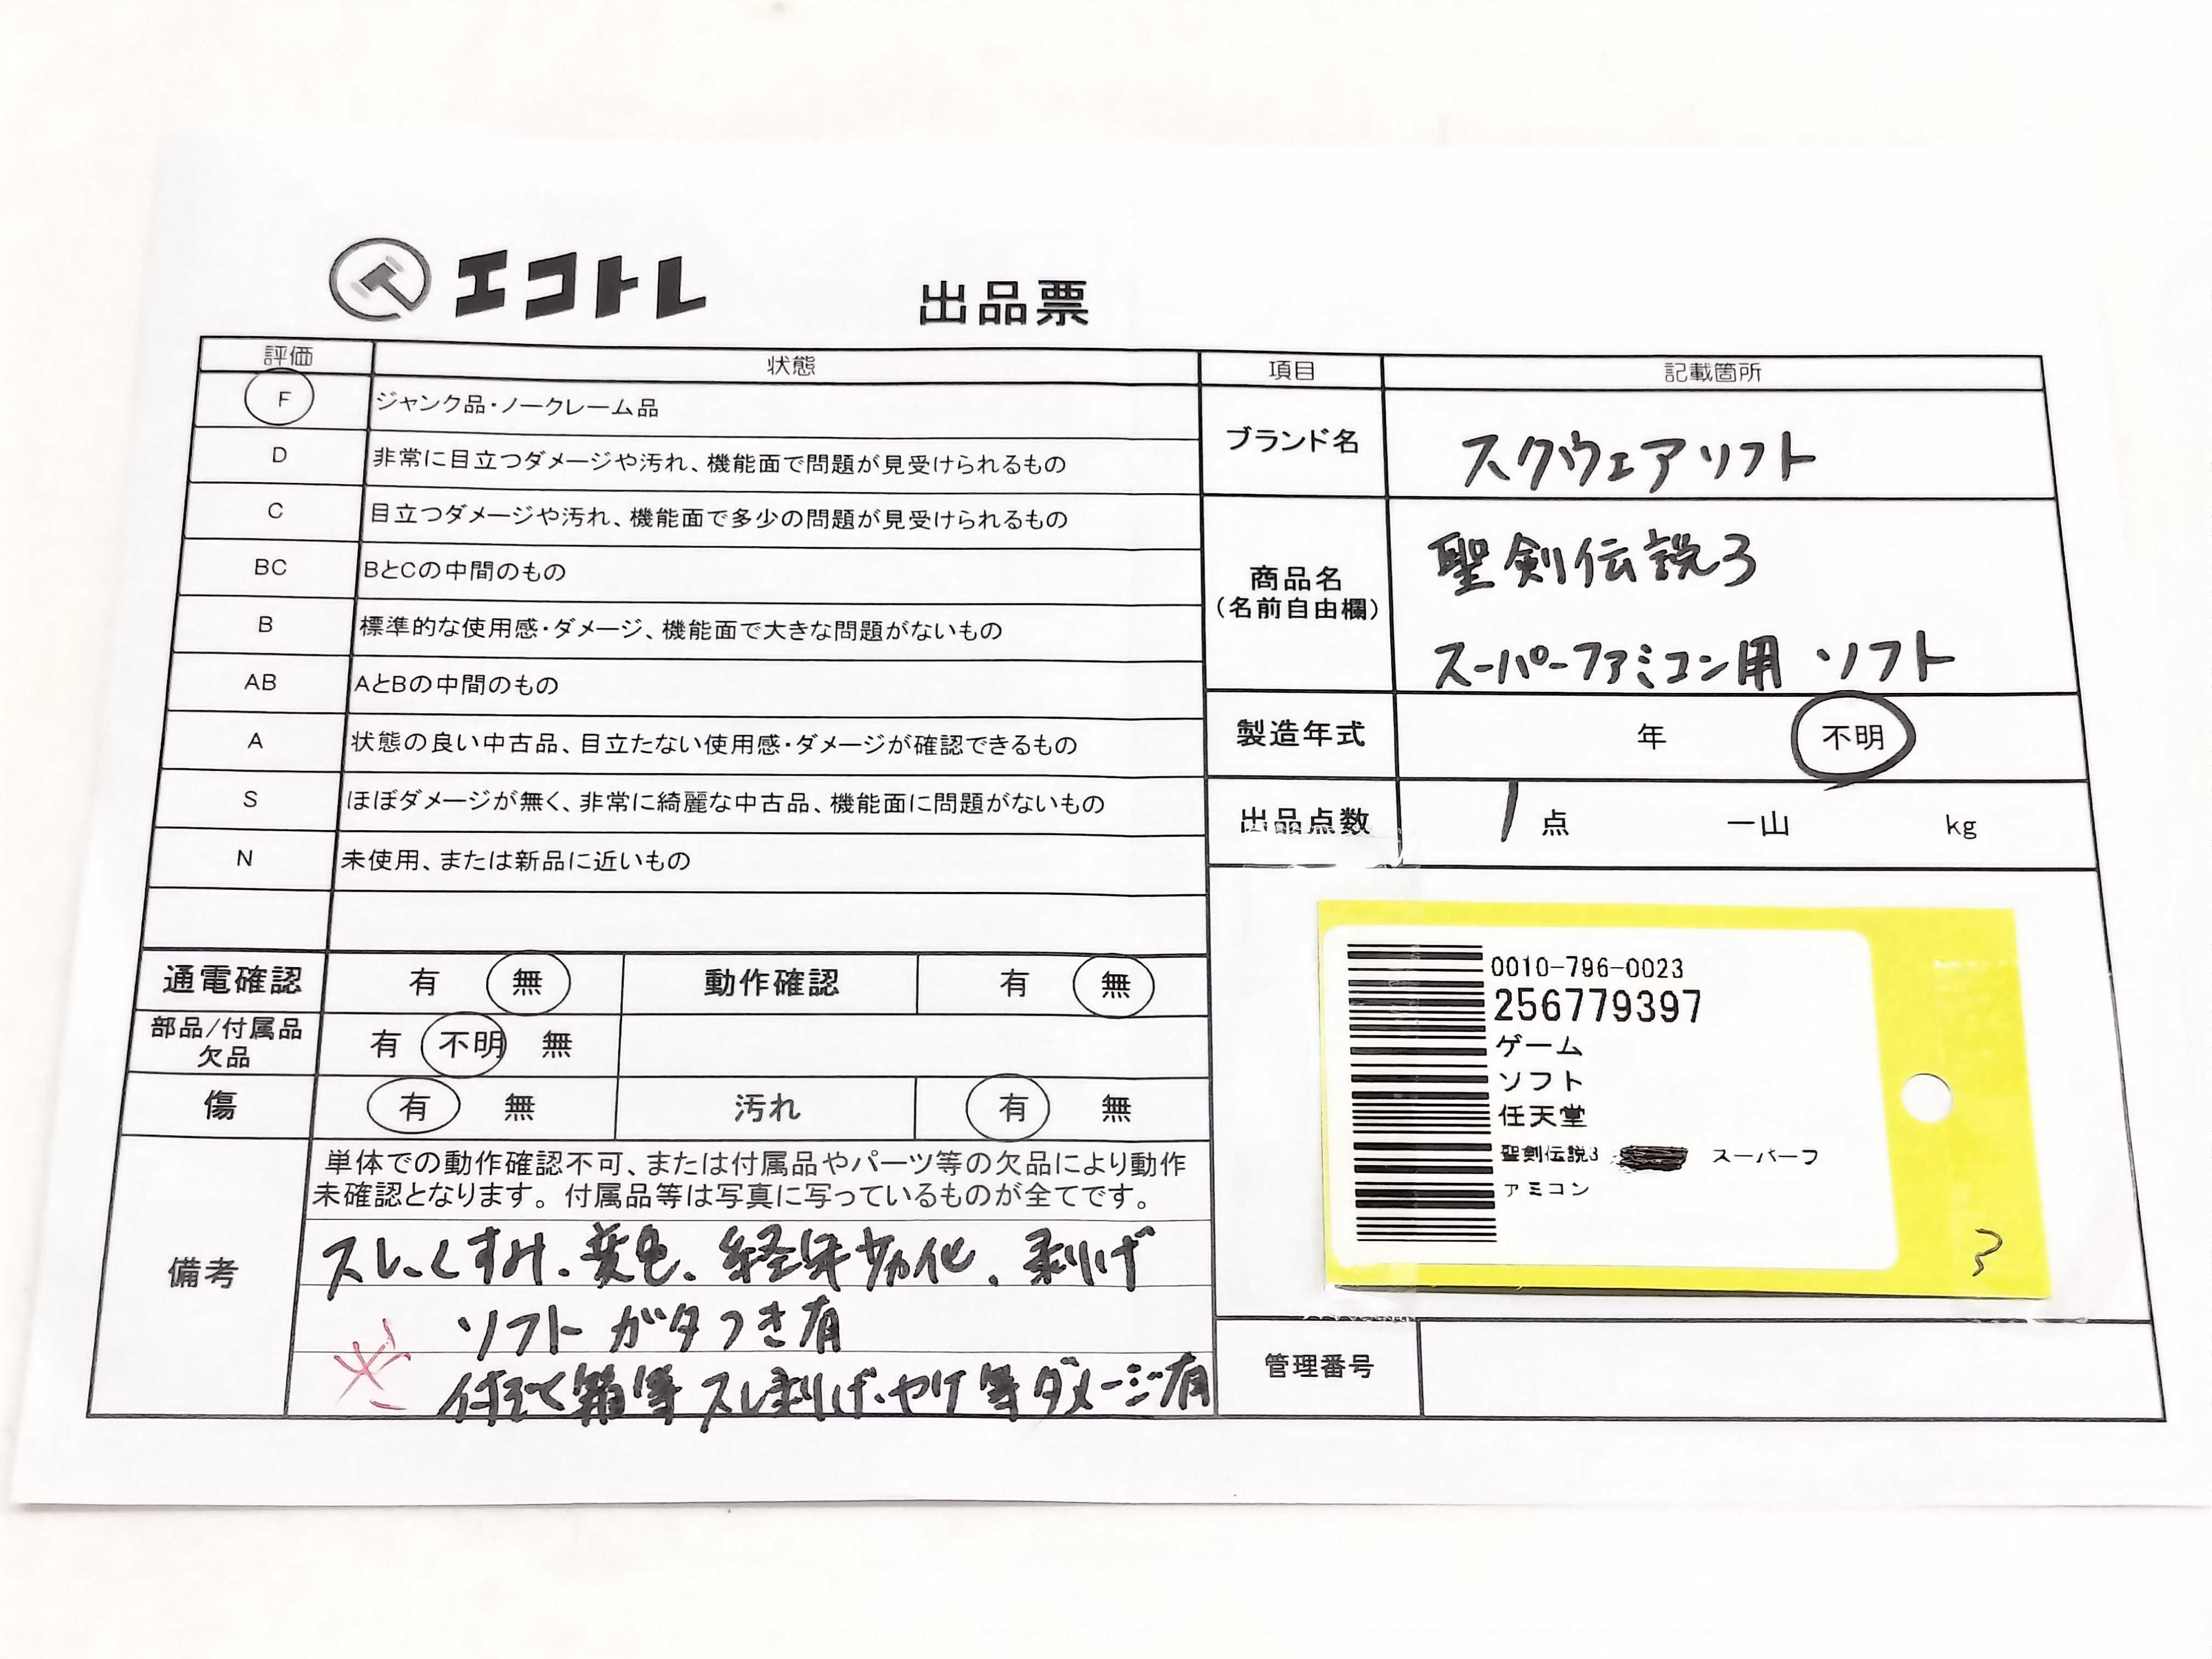 エコトレ
出品票
評価 状態
F ジャンク品・ノークレーム品
D 非常に目立つダメージや汚れ、機能面で問題が見受けられるもの
C 目立つダメージや汚れ、機能面で多少の問題が見受けられるもの
BC BとCの中間のもの
B 標準的な使用感・ダメージ、機能面で大きな問題がないもの
AB AとBの中間のもの
A 状態の良い中古品、目立たない使用感・ダメージが確認できるもの
S ほぼダメージが無く、非常に綺麗な中古品、機能面に問題がないもの
N 未使用、または新品に近いもの
通電確認 有 無 動作確認 有 無
部品/付属品
欠品
有 不明 無
傷 有 無 汚れ 有 無
備考
単体での動作確認不可、または付属品やパーツ等の欠品により動作
未確認となります。付属品等は写真に写っているものが全てです。
スレ、くすみ、変色、経年劣化、剥げ
ソフト ガタつき有
箱等 スレ剥げ、ヤケ等ダメージ有
項目 記載箇所
ブランド名 スクウェアソフト
商品名
(名前自由欄)
聖剣伝説3
スーパーファミコン用 ソフト
製造年式 年 不明
出品点数 1 点 一山 kg
0010-796-0023
256779397
ゲーム
ソフト
任天堂
聖剣伝説3 スーパーフ
ァミコン
管理番号